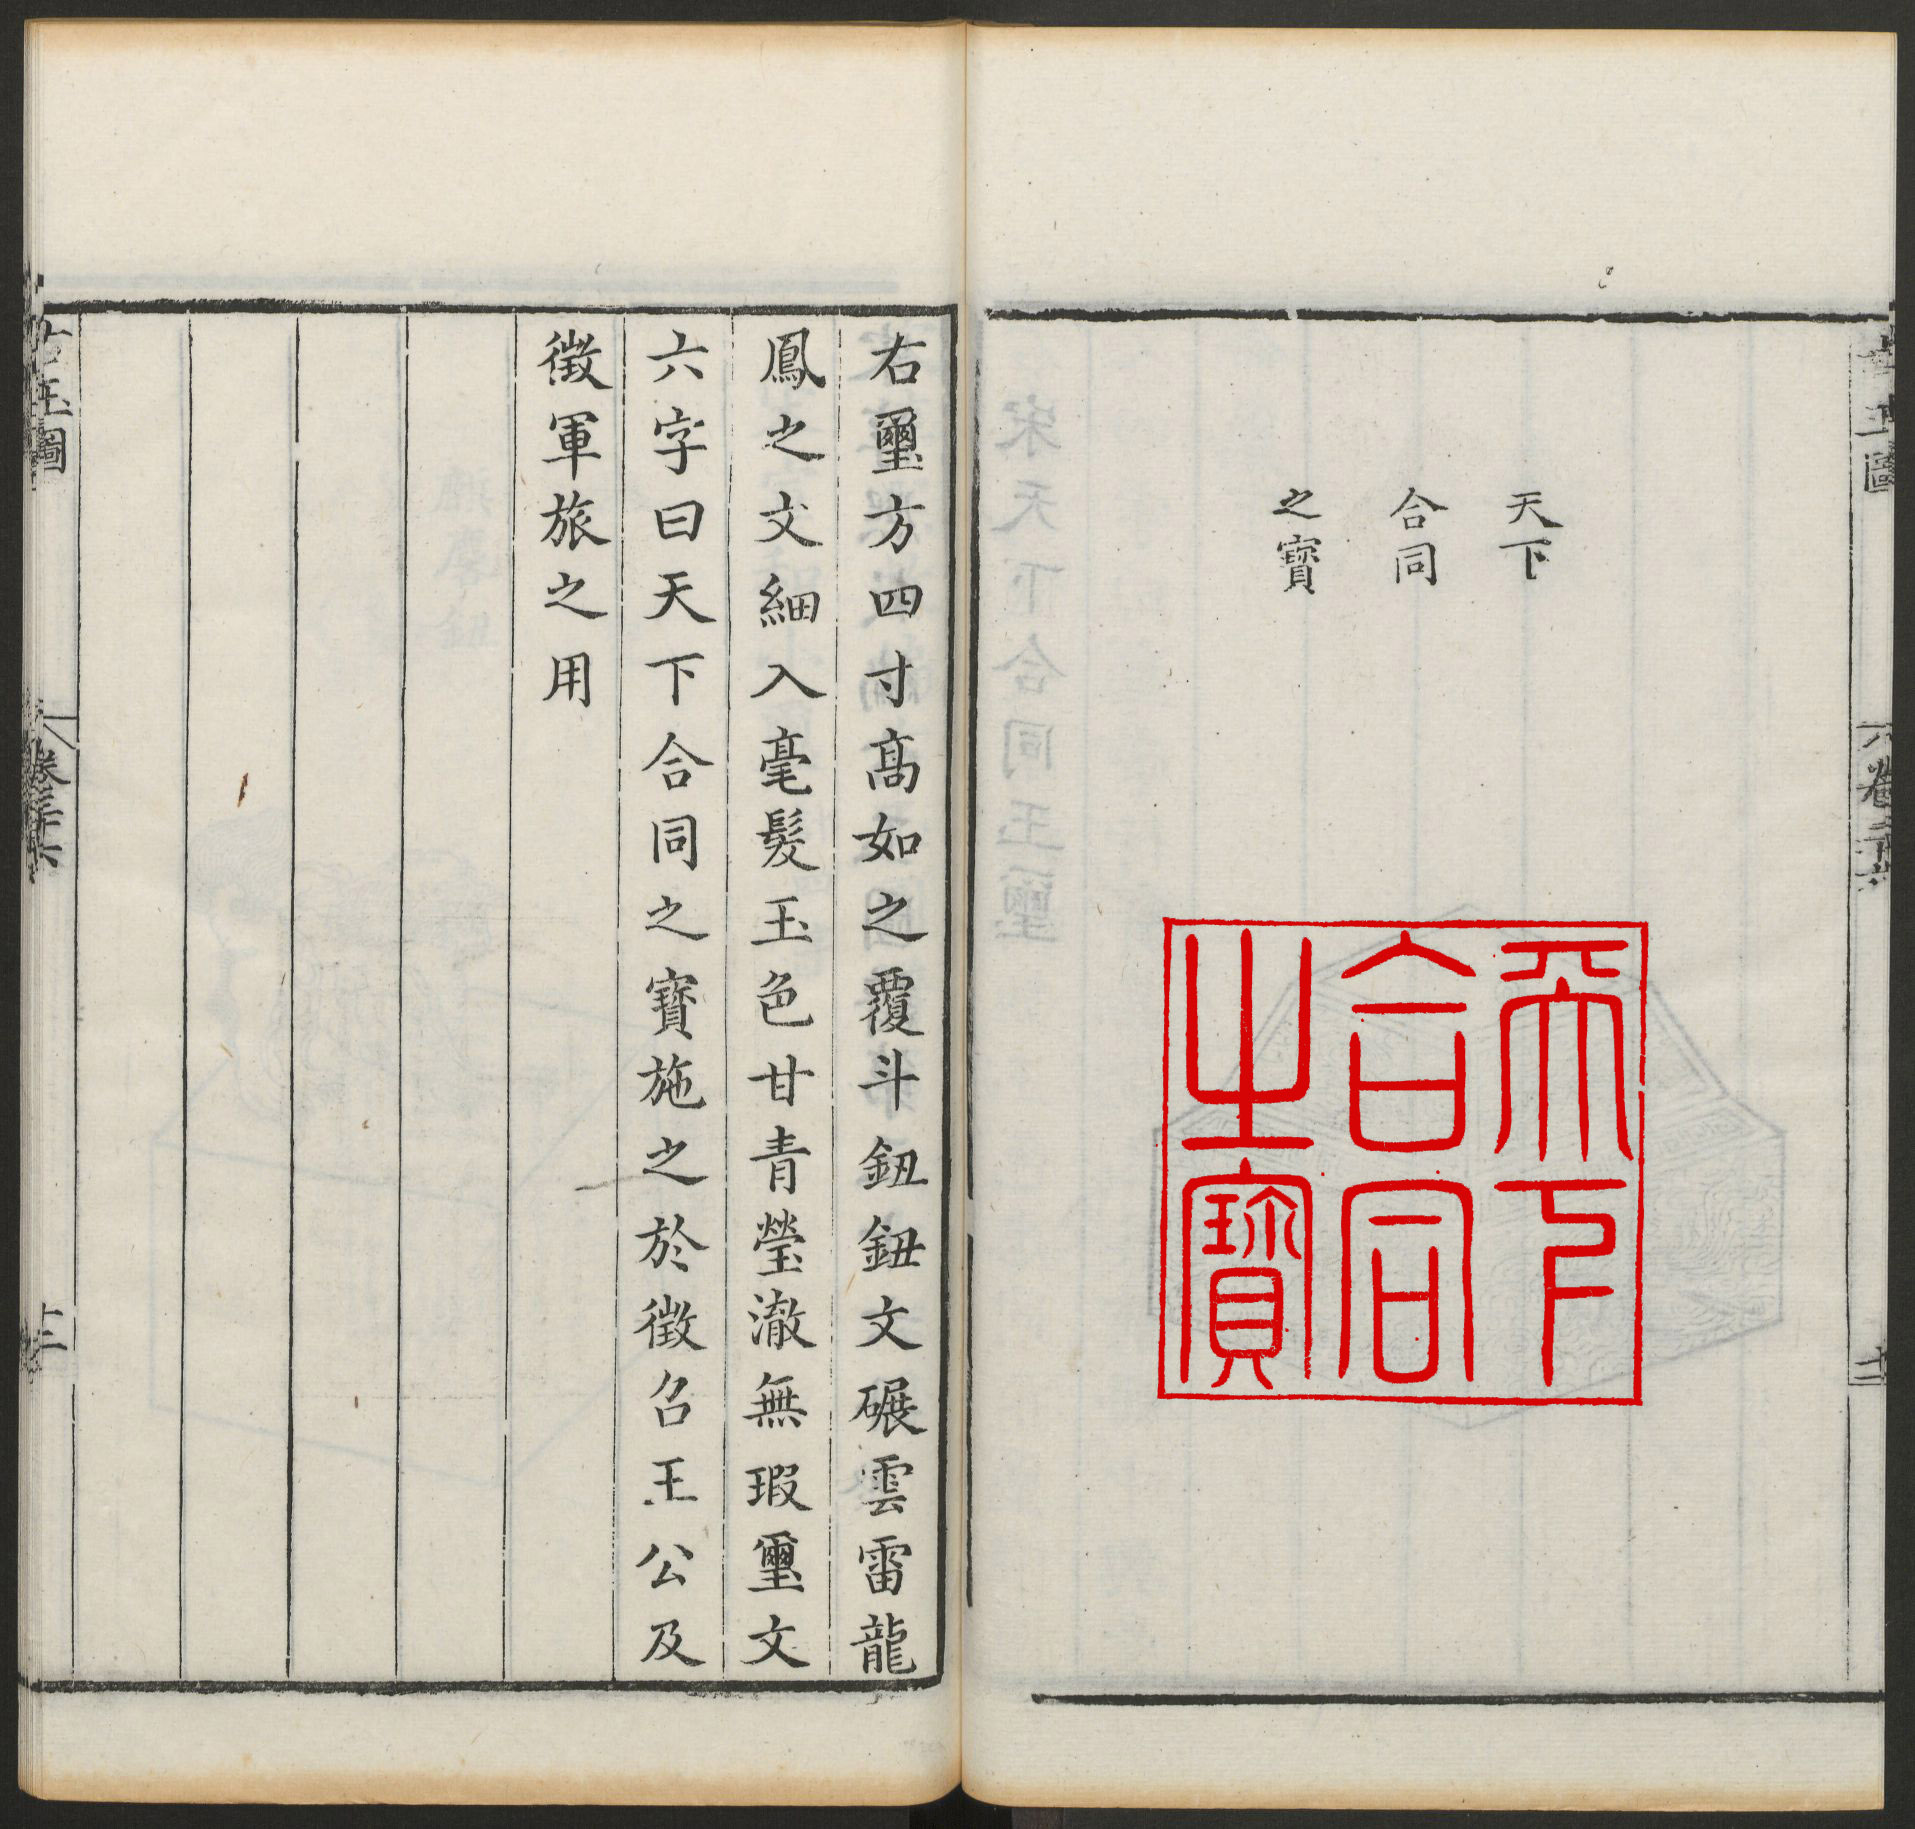 天下
合同
之寶
天下
合同
之寶
右璽方四寸髙如之覆斗鈕鈕文碾雲雷龍
鳳之文細入毫髮玉色甘青瑩澈無瑕璽文
六字曰天下合同之寶施之於徵召王公及
徵軍旅之用
古玉圖
卷三十六
十二